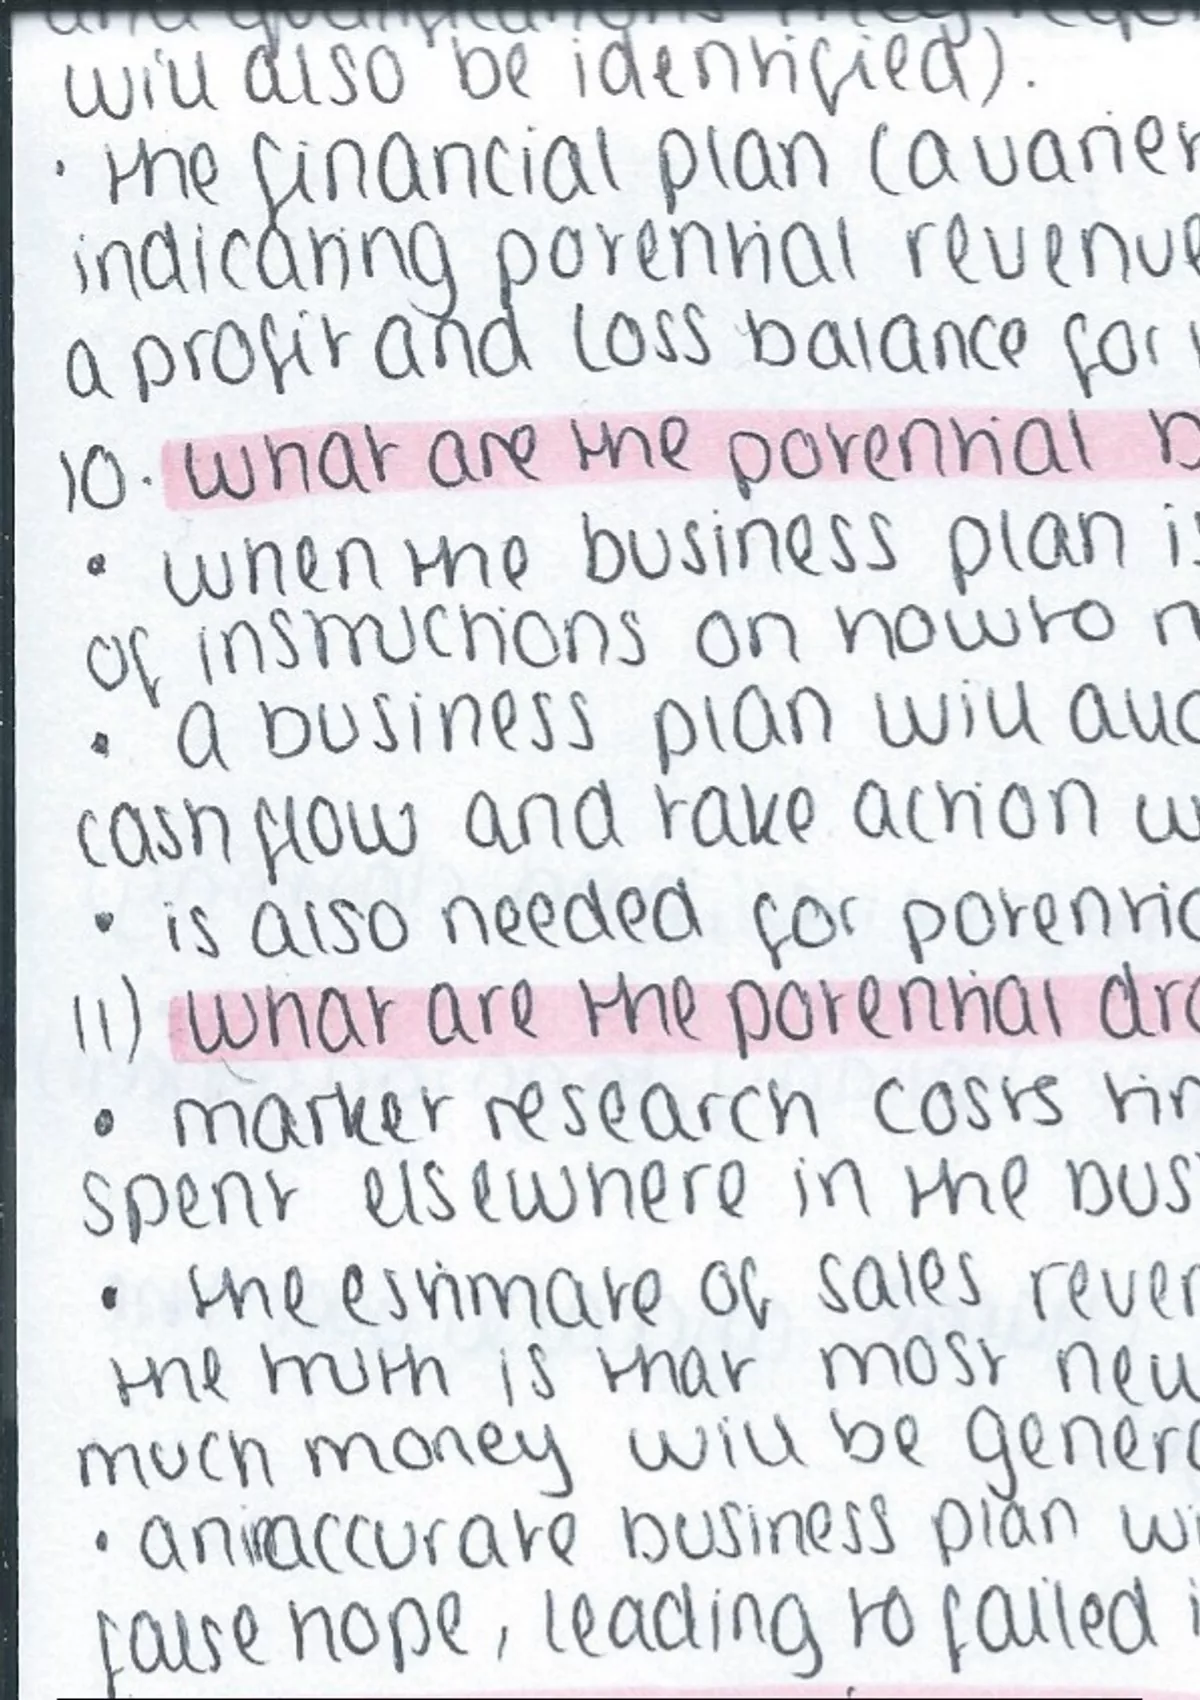 and qualifications they
will also be identified).
· the financial plan (a
indicating potential revenue
a profit and loss balance for
10. what are the potential
• when the business plan is
of instructions on how to
• a business plan will
cash flow and take action
• is also needed for
11) what are the potential
• market research costs
spent elsewhere in the
• the estimate of sales
the truth is that most new
much money will be
• an inaccurate business plan
false hope, leading to failed